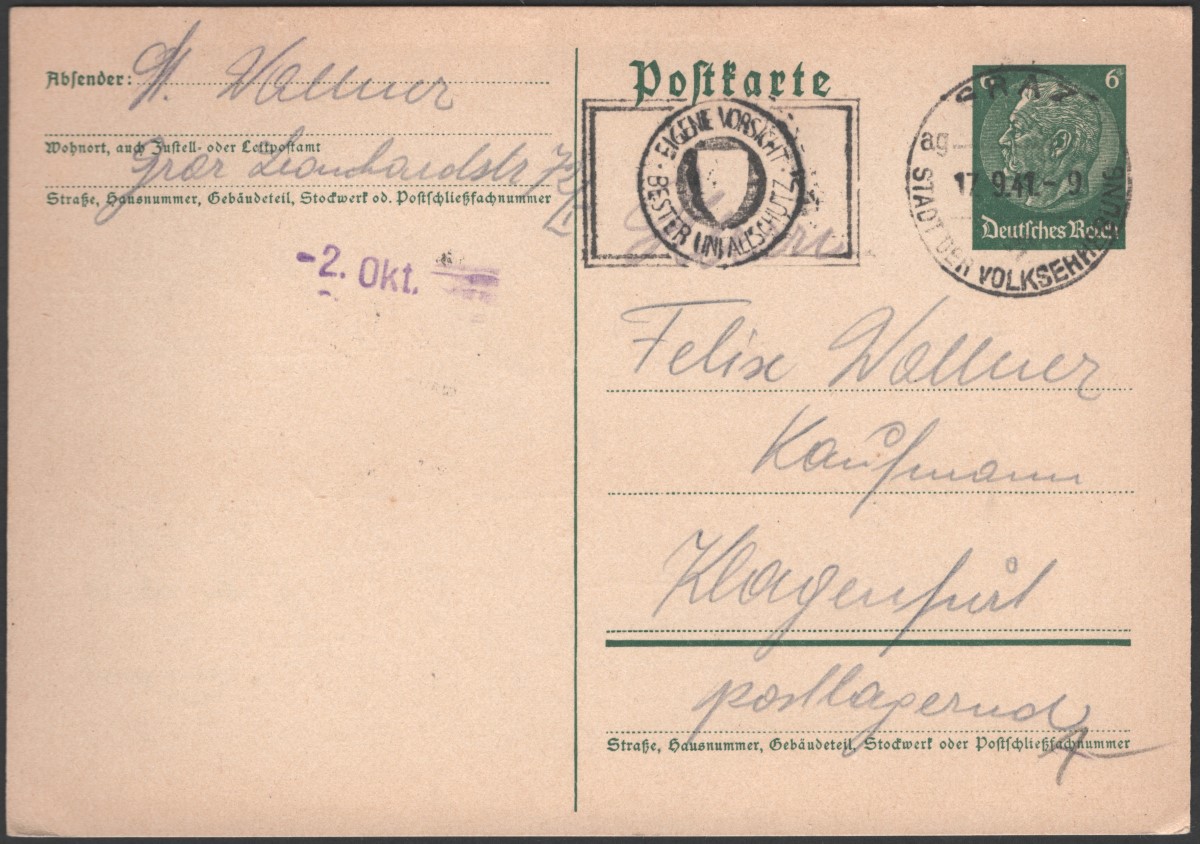 Absender: M. Wallner
Wohnort, auch Zustell- oder Leitpostamt
Graz Leonhardstr
Straße, Hausnummer, Gebäudeteil, Stockwerk od. Postschließfachnummer
-2. Okt.
Postkarte
EIGENE VORSICHT · BESTER UNFALLSCHUTZ ·
6
6
Deutsches Reich
GRAZ
ag
17.9.41.-9
STADT DER VOLKSERHEBUNG
Herrn
Felix Wallner
Kaufmann
Klagenfurt
postlagernd
Straße, Hausnummer, Gebäudeteil, Stockwerk oder Postschließfachnummer